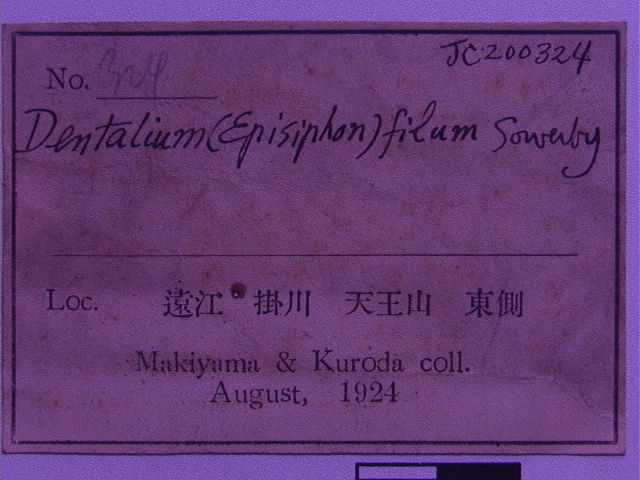 JC200324
No. 324
Dentalium (Episiphon) filum Sowerby
Loc. 遠江 掛川 天王山 東側
Makiyama & Kuroda coll.
August, 1924